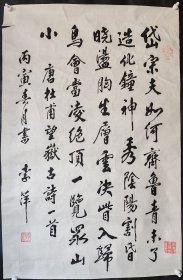 岱宗夫如何齊魯青未了
造化鐘神秀陰陽割昏
曉盪胸生層雲決眥入歸
鳥會當凌絕頂一覽眾山
小 唐杜甫望嶽古詩一首
丙寅春月書 李鐸